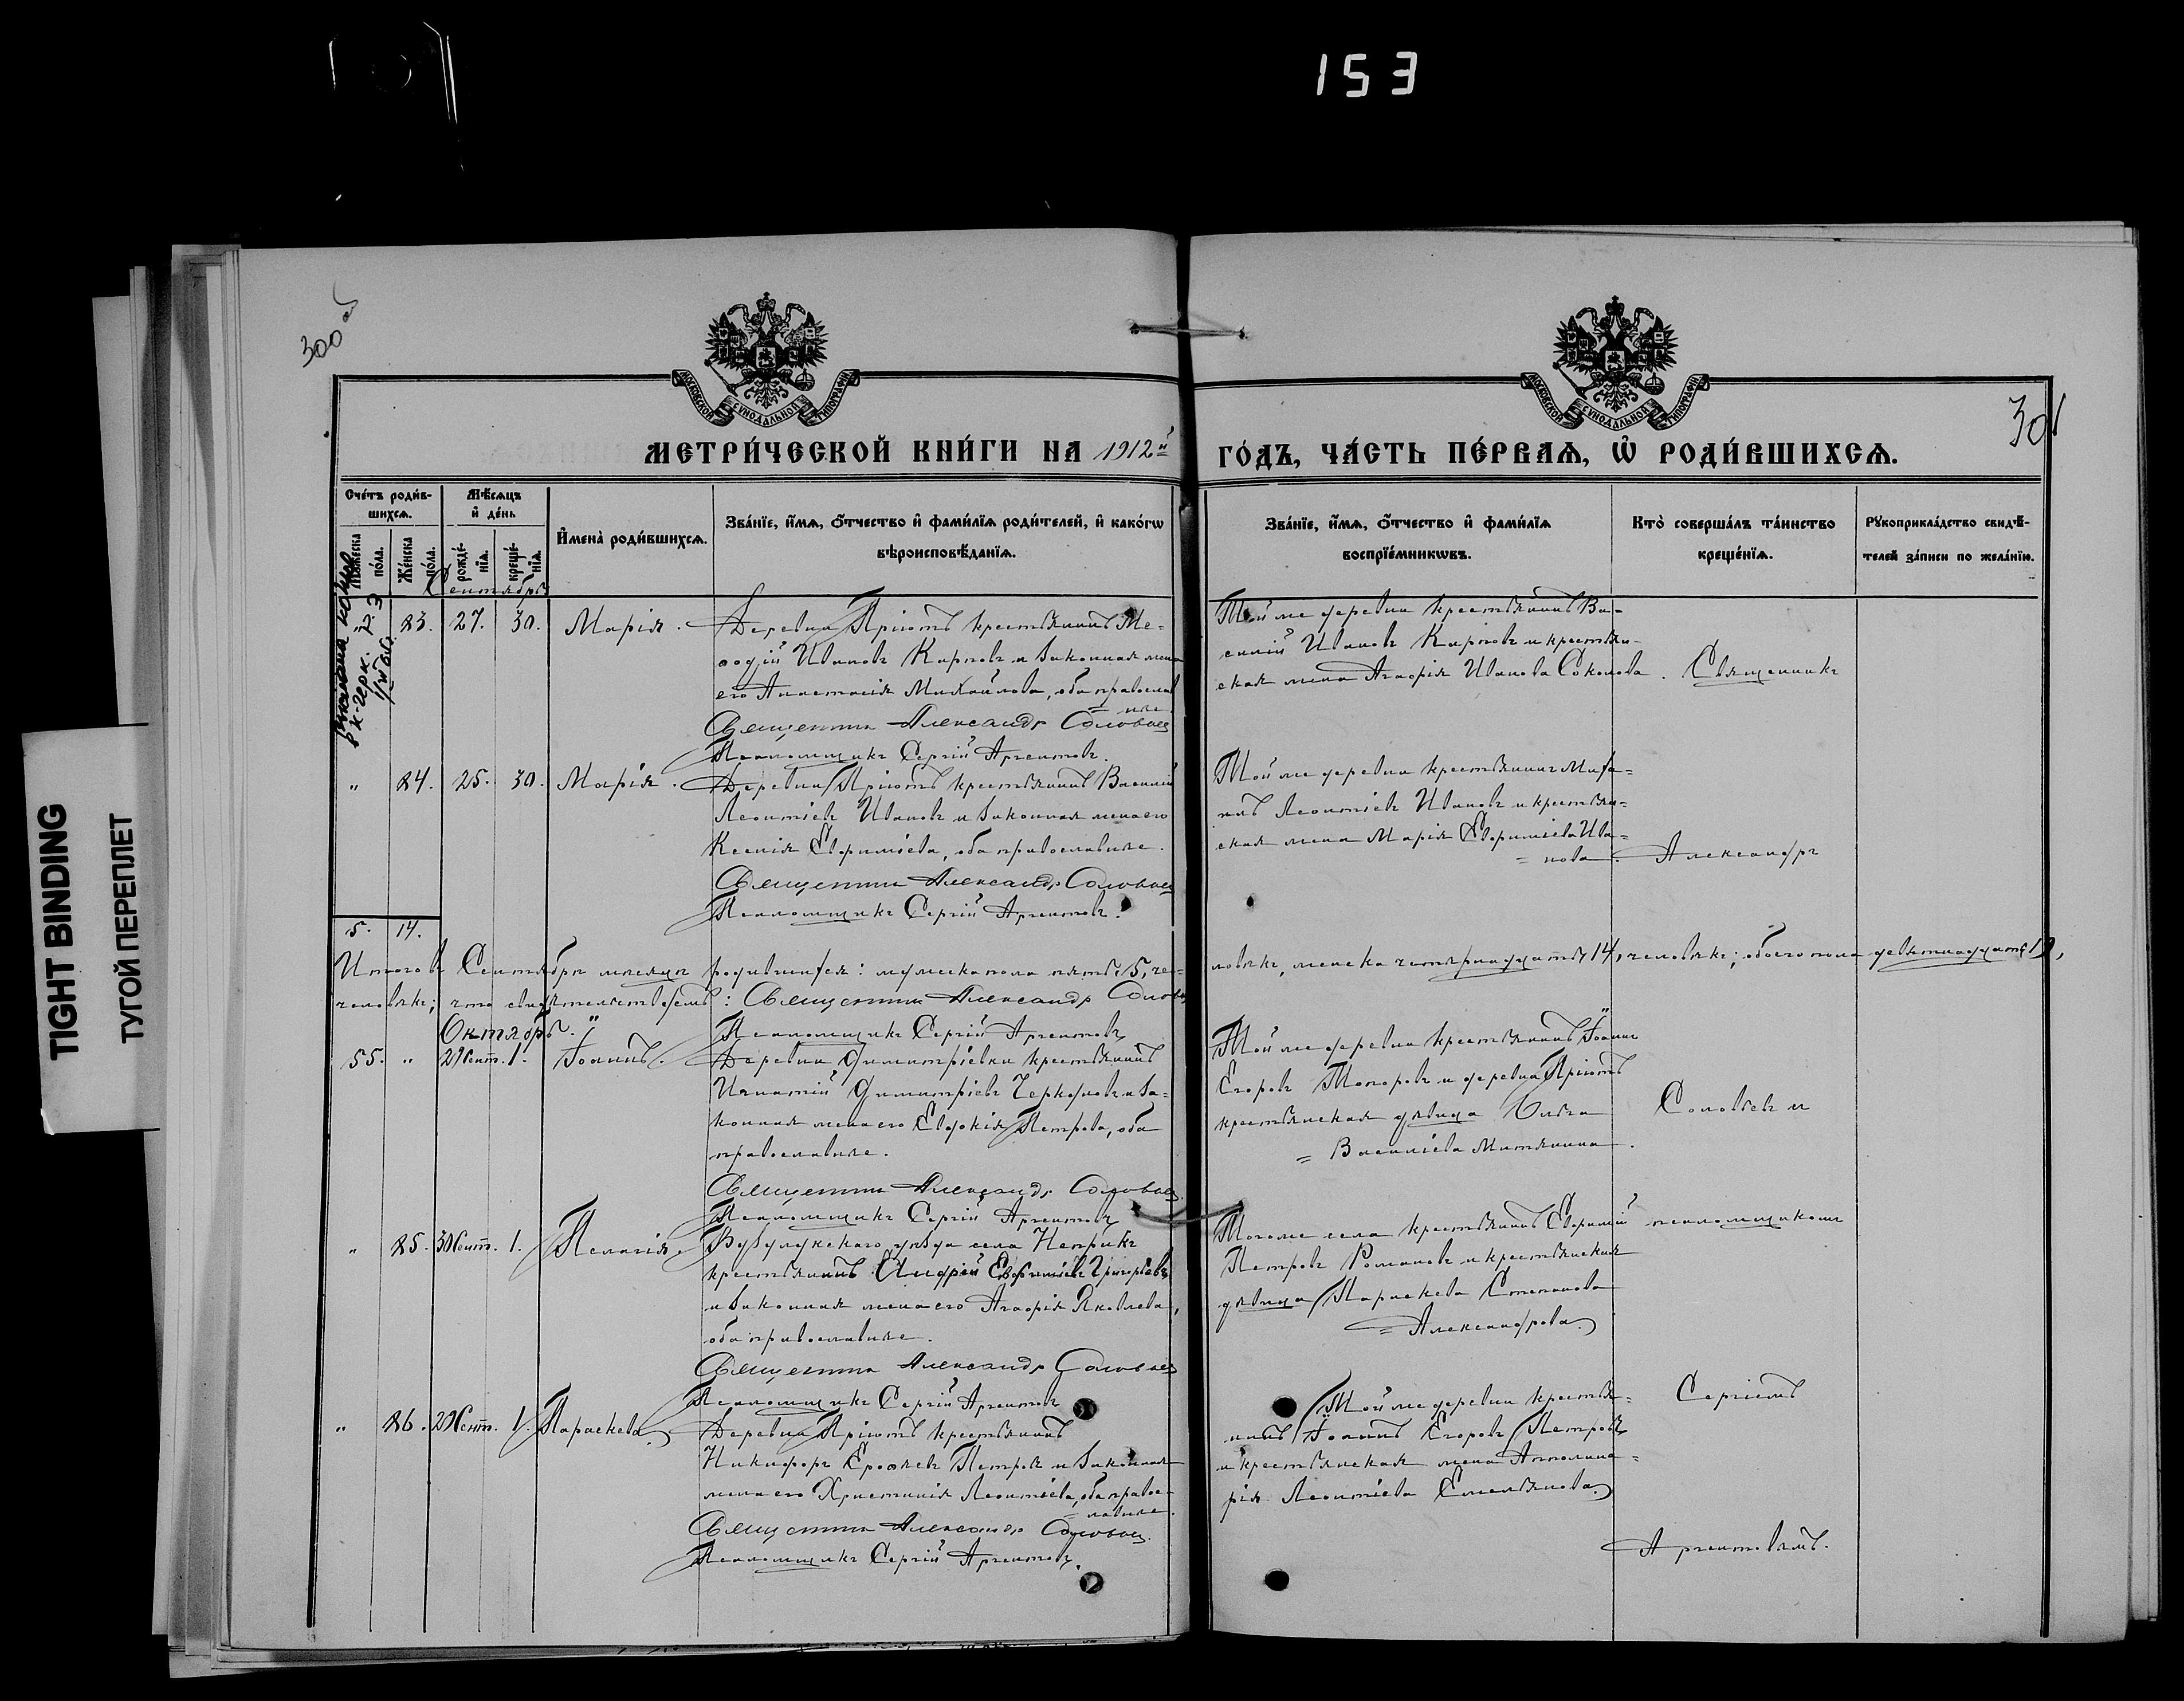 153
TIGHT BINDING
ТУГОЙ ПЕРЕПЛЕТ
300 об
301
МОСКОВСКОЙ СУНОДАЛЬНОЙ ТИПОГРАФІИ
МОСКОВСКОЙ СУНОДАЛЬНОЙ ТИПОГРАФІИ
МЕТРИ́ЧЕСКОЙ КНИ́ГИ НА 1912й
ГО́ДЪ, ЧА́СТЬ ПЕ́РВАѦ, Ѡ҆ РОДИ́ВШИХСѦ.
Сче́тъ роди́в-
шихсѧ.
Мѹжеска по́ла.
Же́нска по́ла.
Мѣ́сѧцъ
и҆ де́нь
рожде́-
нїѧ.
креще́-
нїѧ.
И҆мена̀ роди́вшихсѧ.
Зва́нїе, и҆́мѧ, ѻ҆́тчество и҆ фами́лїѧ роди́телей, и҆ како́гѡ
вѣроисповѣ́данїѧ.
Зва́нїе, и҆́мѧ, ѻ҆́тчество и҆ фами́лїѧ
воспрїе́мникѡвъ.
Кто̀ соверша́лъ та́инство
креще́нїѧ.
Рѹкоприкла́дство свидѣ́-
телей за́писи по жела́нїю.
Сентябрь
" 83. 27. 30. Марія. Деревни Пріютъ крестьянинъ Ме-
ѳодій Ивановъ Карповъ и законная жена
его Анастасія Михайлова, оба православ
= ные
Священникъ Александр Соловьев
Псаломщикъ Сергій Аргентовъ.
Той же деревни крестьянинъ Ва-
силій Ивановъ Карповъ и крестьян-
ская жена Агаѳія Иванова Соколова. Священникъ
" 84. 25. 30. Марія. Деревни Пріютъ крестьянинъ Василій
Леонтіевъ Ивановъ и законная жена его
Ксенія Евѳиміева, оба православные.
Священникъ Александр Соловьев
Псаломщикъ Сергій Аргентовъ.
Той же деревни крестьянинъ Миха-
илъ Леонтіевъ Ивановъ и крестьян-
ская жена Марія Евѳиміева Ива-
= нова. Александръ
5. 14.
Итого въ Сентябрѣ мѣсяцѣ родившихся: мужеска пола пять, 5, че-
ловѣкъ, женска четырнадцать, 14, человѣкъ; обоего пола девятнадцать, 19,
человѣкъ; что свидѣтельствуемъ: Священникъ Александр Соловьев
Псаломщикъ Сергій Аргентовъ
Октябрь.
55. " 29 Сент. 1. Іоаннъ. Деревни Димитріевки крестьянинъ
Игнатій Димитріевъ и за-
конная жена его Евдокія Петрова, оба
православные.
Священникъ Александр Соловьев.
Псаломщикъ Сергій Аргентовъ
Той же деревни крестьянинъ Іоаннъ
Егоровъ Топоровъ и деревни Пріютъ
крестьянская дѣвица Ольга
= Василіева Митянина.
Соловьевъ и
" 85. 30 Сент. 1. Пелагія. Бузулукскаго уѣзда села Неприкъ
крестьянинъ Андрей Евфиміевъ Григорьевъ
и законная жена его Агаѳія Яковлева,
оба православные.
Священникъ Александр Соловьев
Псаломщикъ Сергій Аргентовъ
Того же села крестьянинъ Евѳимій
Петровъ Романовъ и крестьянская
дѣвица Параскева Степанова
= Александрова.
псаломщикомъ
" 86. 29 Сент. 1. Параскева. Деревни Пріютъ крестьянинъ
Никифоръ Ероѳеевъ Петровъ и законная
жена его Христинія Леонтіева, оба право-
= славные.
Священникъ Александр Соловьев.
Псаломщикъ Сергій Аргентовъ.
Той же деревни крестья-
нинъ Іоаннъ Егоровъ Петровъ
и крестьянская жена Апполина-
рія Леонтіева Емельянова.
Сергіемъ
Аргентовымъ.